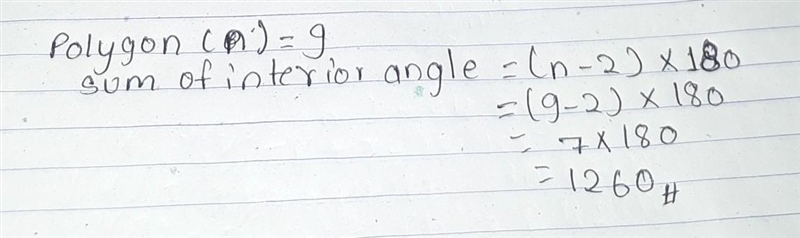 Polygon (n) = 9
sum of interior angle = (n-2) × 180
= (9-2) × 180
= 7 × 180
= 1260 #